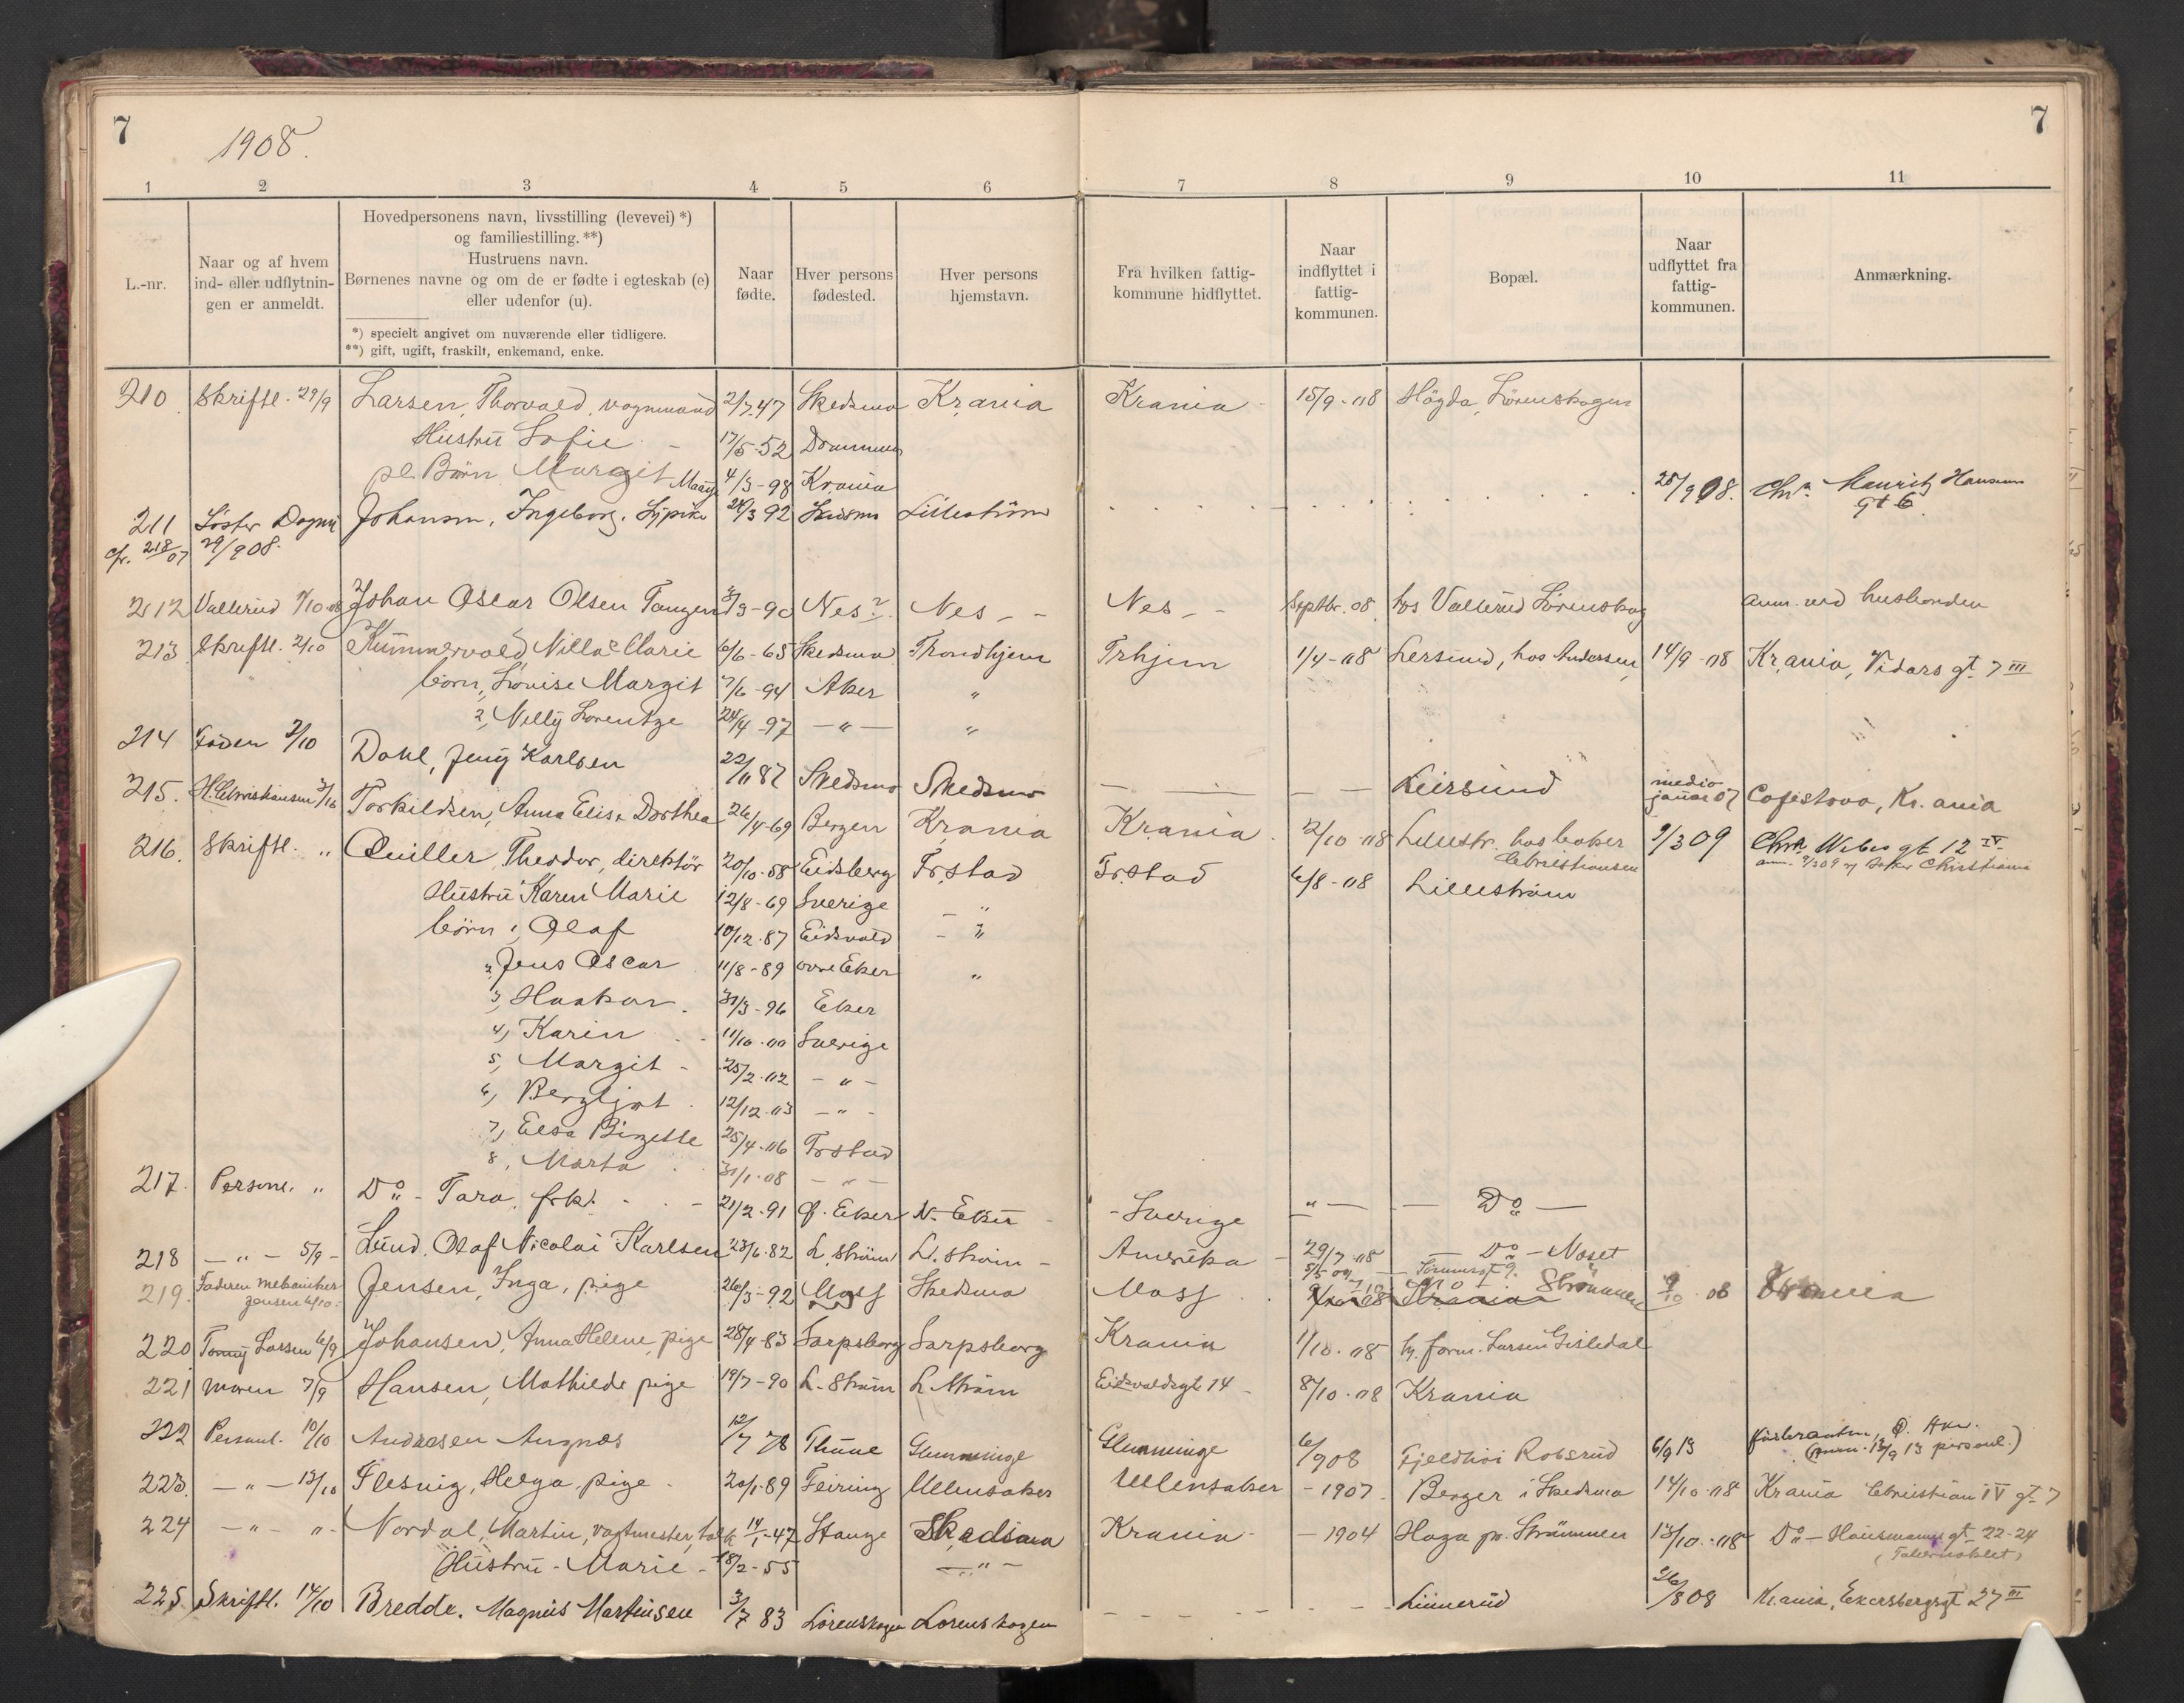 7
1908.
7
1 2 3 4 5 6 7 8 9 10 11
L.-nr.
Naar og af hvem
ind- eller udflytnin-
gen er anmeldt.
Hovedpersonens navn, livsstilling (levevei) *)
og familiestilling. **)
Hustruens navn.
Børnenes navne og om de er fødte i egteskab (e)
eller udenfor (u).
*) specielt angivet om nuværende eller tidligere.
**) gift, ugift, fraskilt, enkemand, enke.
Naar
fødte.
Hver persons
fødested.
Hver persons
hjemstavn.
Fra hvilken fattig-
kommune hidflyttet.
Naar
indflyttet i
fattig-
kommunen.
Bopæl.
Naar
udflyttet fra
fattig-
kommunen.
Anmærkning.
210 Skriftl. 29/9 Larsen, Thorvald, vognmand 2/7-47 Skedsmo Kr.ania Krania 15/9-08 Högda, Lörenskogen
Hustru Sofie - 17/5-52 Drammen
pl. Barn Margit 4/3-98 Krania
211 Söster Dagni Johansen, Ingeborg. 24/3 92 Lilleström 28/9 08. Chra Mauritz Hansens
gt 6
cfr. 218/07 29/9 08.
212 Vallerud 1/10-08 Johan Oscar Olsen Tangen 3/3-90 Nes ? Nes - - Nes - - Septbr. 08 hos Vallerud Lörenskog anm. ved husbonden
213 Skriftl. 2/10 Kummervold Nilla Marie 6/6-65 Skedsmo Trondhjem Trhjem 1/4-08 Lersund, hos Andersen, 14/9-08 Kr.ania, Vidars gt. 7 III
börn, Lovise Margit 7/6-94 Aker "
2, Nelly Lorentze 24/4-97 - " - "
214 Faderen 2/10 Dahl, Jeny Karlsen 22/11 87 Skedsmo Skedsmo - - - - Leirsund medio
januar 07 Cafestova, Kr. ania
215. H. Christiansen 3/10 Torkildsen, Anna Elise Dorthea 26/4-69 Bergen Kr.ania Krania. 2/10-08 Lillestr. hos baker
Christiansen 9/3 09 Chra. Wibes gt 12 IV.
216. Skriftl. " Quiller, Theodor, direktör 20/10-58 Eidsberg Fr.stad Fr.stad 6/8-08 Lilleström
Hustru Karen Marie 12/8-69 Sverige - "
börn 1, Olaf 10/12-87 Eidsvold - "
2, Jens Oscar 11/8-89 övre Eker "
3, Haakon. 31/3-96 Eker
4, Karin 11/10-00 Sverige
5, Margit - 25/2-02 - " -
6, Bergljot. 12/12-03 - " -
7, Elsa Birgitte 25/4-06 Frstad
8, Marta. 31/1-08 - " -
217. Personl. " Do - Tara, frk. - 21/2-91 Ø. Eker N. Eker - - Sverige " - - Do -
218 - " - 5/9 - Lund, Olaf Nicolai Karlsen 23/6-82 L.ström L. ström - Amerika - 29/7-08 - Do - Noset
219. Faderen mekaniker
Jensen 6/10 - Jensen, Inga, pige 26/3-92 Moss Skedsmo Moss Strömmen 9/10-08 Krania
220 Larsen 6/9 Johansen, Anna Helene, pige 28/4-83 Sarpsborg Sarpsborg Krania 1/10-08 h. form. Larsen
221 Moren 7/9 Hansen, Mathilde pige 19/7-90 L-Ström L.ström Eidsvoldsgt 14 - 8/10-08 Krania
222 Personl. 10/10 Andresen 12/7 78 Thune Glemminge Glemminge 6/9 08 Fjeldhöi Robsrud 6/9 13 (anm. 13/9 13 personl.)
223. - " - 13/10 Flesvig, Helga, pige - 20/1-89 Feiring Ullensaker Ullensaker - 1907. Berger i Skedsmo 14/10-08 Krania Christian IV gt. 7
224 - " - " - Nordal, Martin, vagtmester, 14/1-47 Stange Skedsmo Krania - - 1904 Haga pr. Strömmen 13/10-08 Do - Hausmanns gt. 22-24
(Tabernaklet)
Hustru - Marie - 18/2-55 - " -
225. Skriftl. 14/10 Bredde. Magnus Martinsen 3/7 83 Lörenskogen Lörenskogen - - - - - - Linnerud 26/8 08 Kr.ania, Ekersbergsgt 27 III